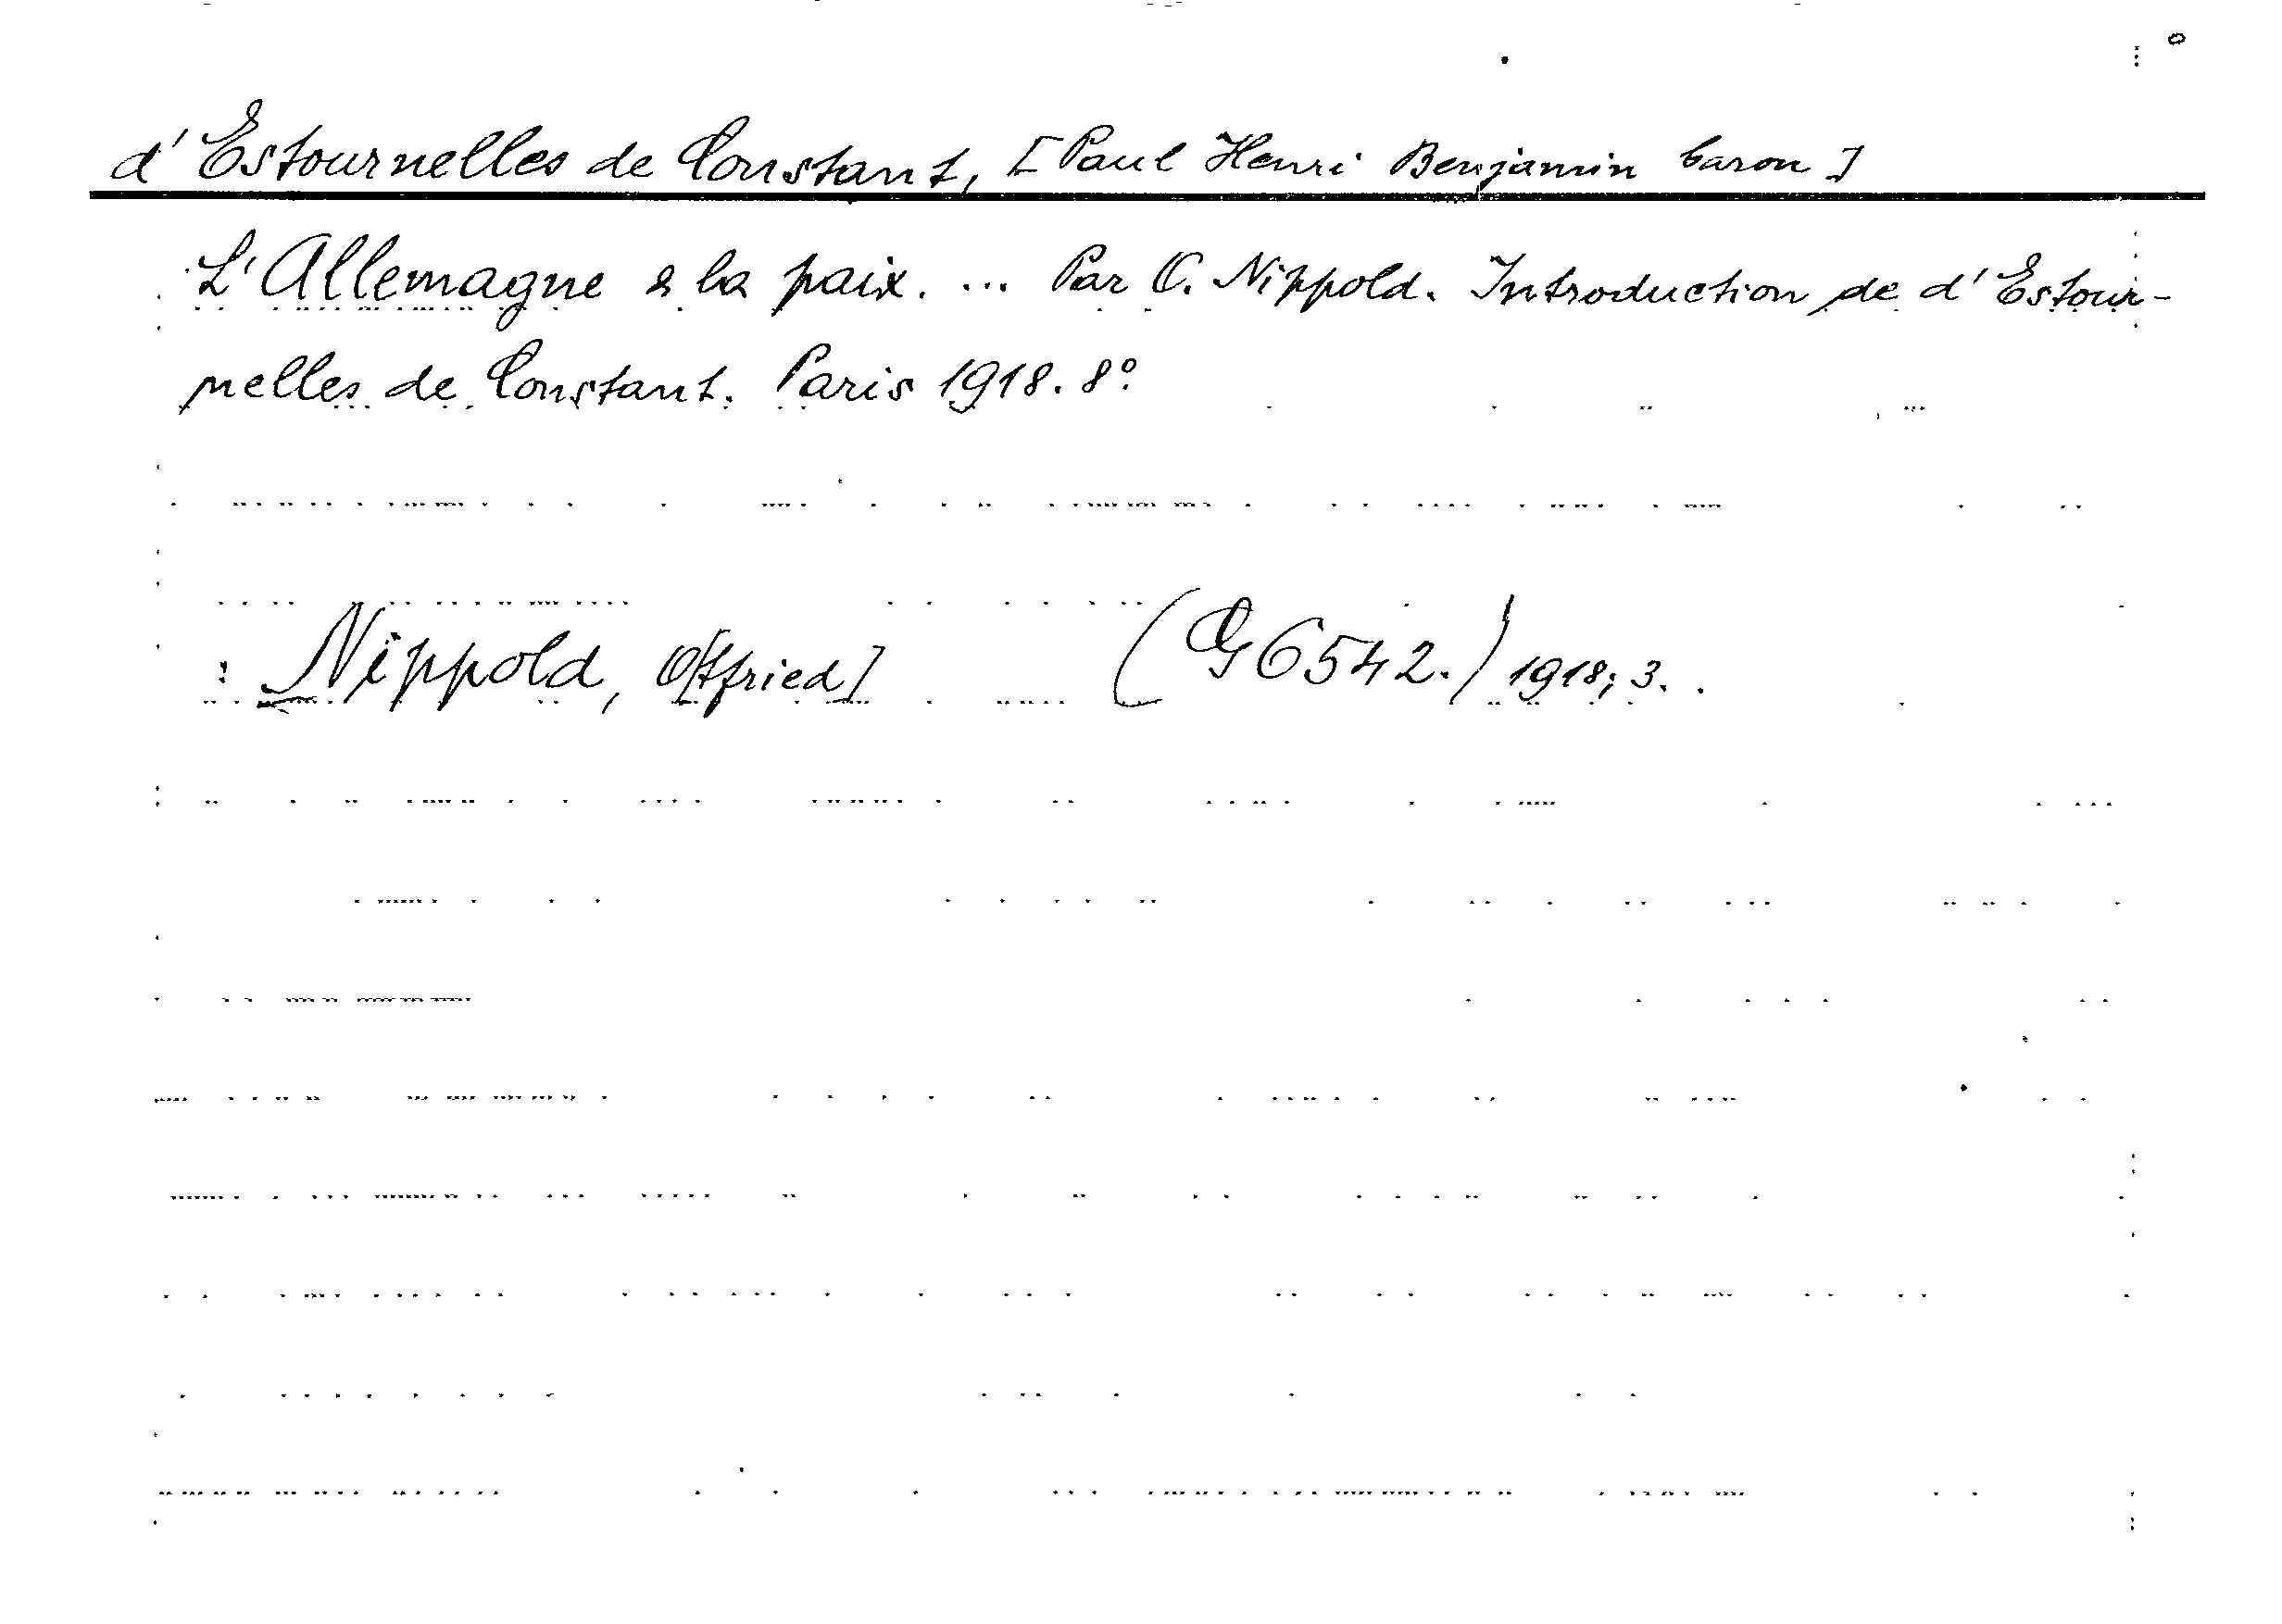 d'Estournelles de Constant, [Paul Henri Benjamin baron]
L'Allemagne & la paix. ... Par O. Nippold. Introduction de d'Estour-
nelles de Constant. Paris 1918. 8°.
: Nippold, O[ttfried]   (G 6542.) 1918; 3.